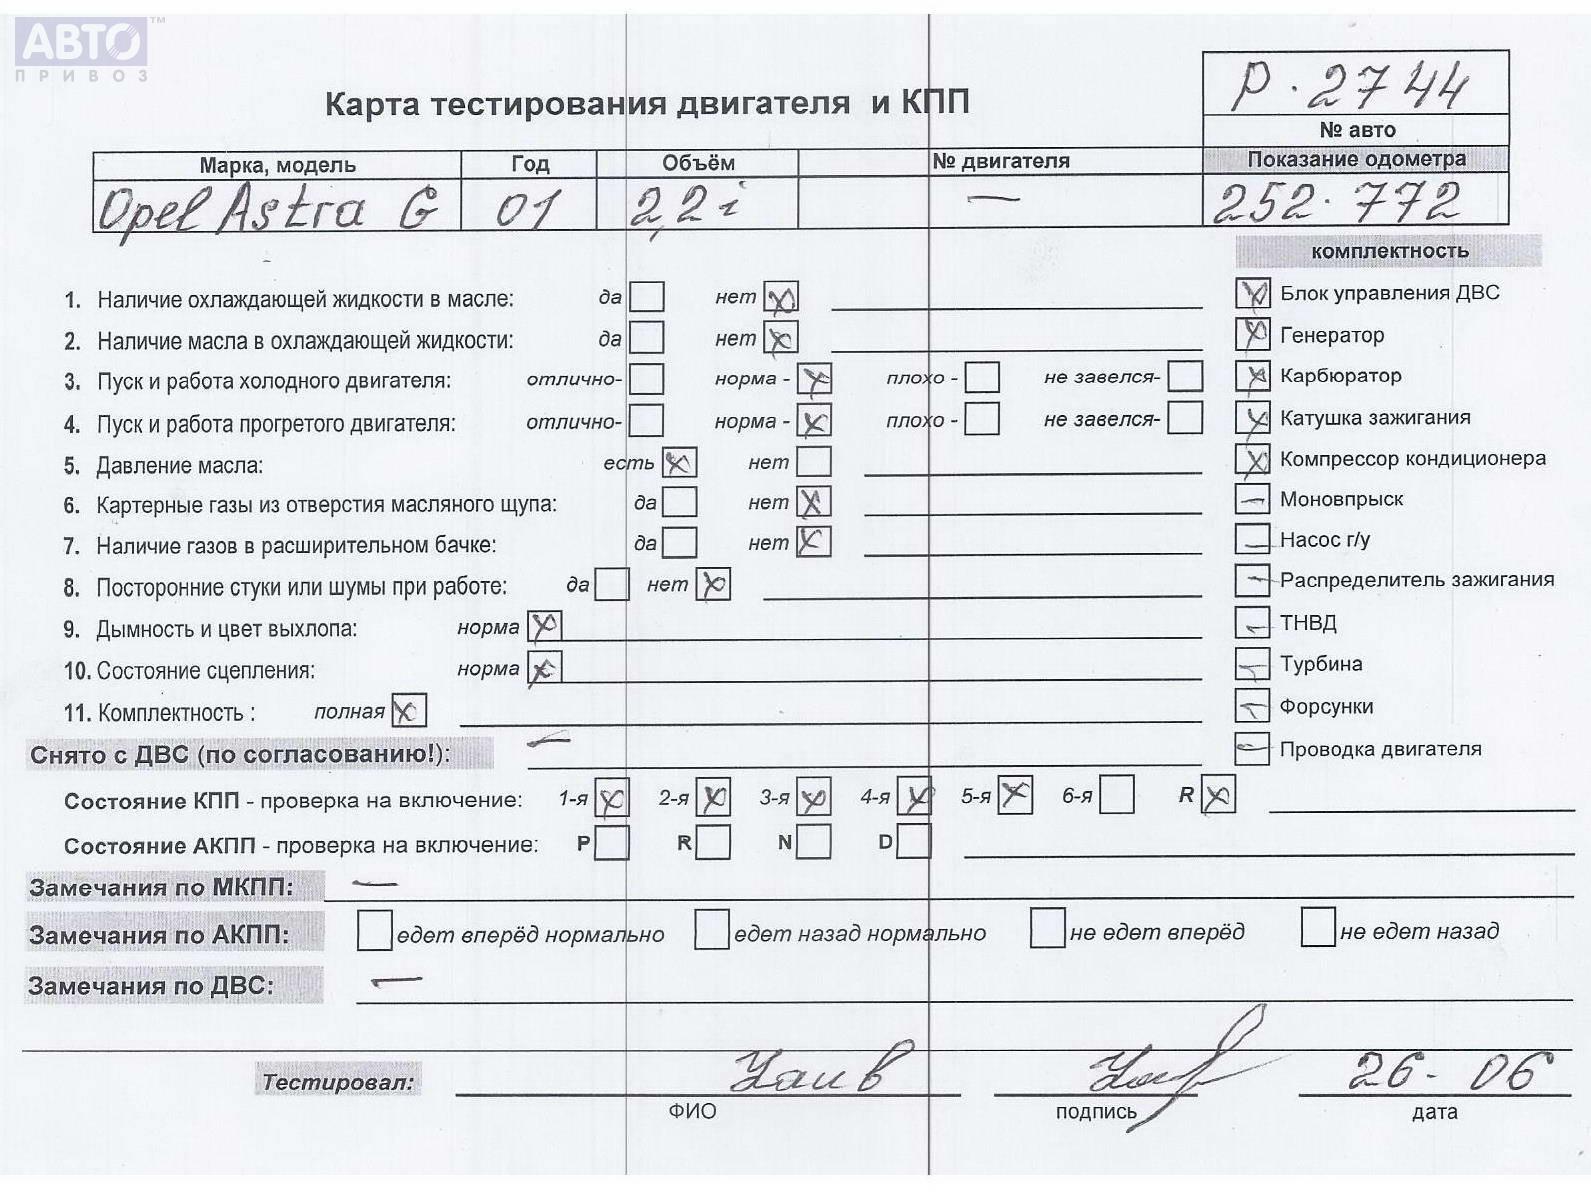 АВТО™
ПРИВОЗ
Р. 2744
Карта тестирования двигателя и КПП
№ авто
Марка, модель Год Объём № двигателя Показание одометра
Opel Astra G 01 2,2i — 252.772
комплектность
1. Наличие охлаждающей жидкости в масле: да нет Блок управления ДВС
2. Наличие масла в охлаждающей жидкости: да нет Генератор
3. Пуск и работа холодного двигателя: отлично- норма - плохо - не завелся- Карбюратор
4. Пуск и работа прогретого двигателя: отлично- норма - плохо - не завелся- Катушка зажигания
5. Давление масла: есть нет Компрессор кондиционера
6. Картерные газы из отверстия масляного щупа: да нет Моновпрыск
7. Наличие газов в расширительном бачке: да нет Насос г/у
8. Посторонние стуки или шумы при работе: да нет Распределитель зажигания
9. Дымность и цвет выхлопа: норма ТНВД
10. Состояние сцепления: норма Турбина
11. Комплектность : полная Форсунки
Снято с ДВС (по согласованию!): — Проводка двигателя
Состояние КПП - проверка на включение: 1-я 2-я 3-я 4-я 5-я 6-я R
Состояние АКПП - проверка на включение: P R N D
Замечания по МКПП: —
Замечания по АКПП: едет вперёд нормально едет назад нормально не едет вперёд не едет назад
Замечания по ДВС: —
Тестировал: 26-06
ФИО подпись дата